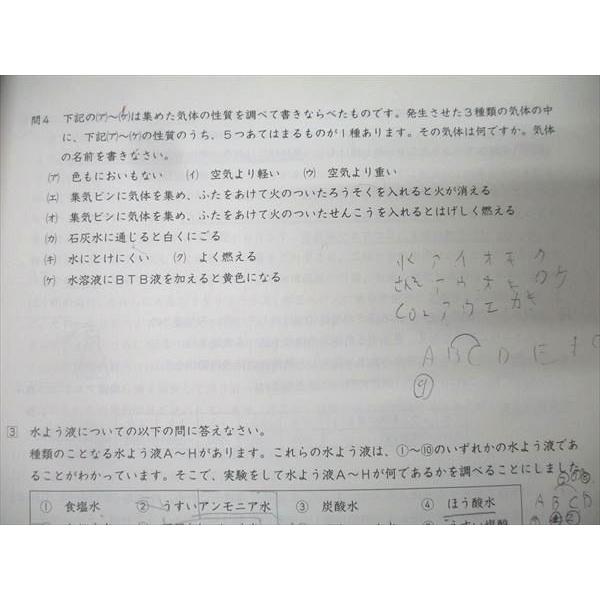 問4 下記の(ア)〜(ケ)は集めた気体の性質を調べて書きならべたものです。発生させた3種類の気体の中
に、下記(ア)〜(ケ)の性質のうち、5つあてはまるものが1種あります。その気体は何ですか。気体
の名前を書きなさい。
(ア) 色もにおいもない (イ) 空気より軽い (ウ) 空気より重い
(エ) 集気ビンに気体を集め、ふたをあけて火のついたろうそくを入れると火が消える
(オ) 集気ビンに気体を集め、ふたをあけて火のついたせんこうを入れるとはげしく燃える
(カ) 石灰水に通じると白くにごる
(キ) 水にとけにくい (ク) よく燃える
(ケ) 水溶液にBTB液を加えると黄色になる
水 ア イ オ キ ク
さんそ ア ウ オ
CO2 ア ウ エ カ
A B C D E
⑨
3 水よう液についての以下の問に答えなさい。
種類のことなる水よう液A〜Hがあります。これらの水よう液は、①〜⑩のいずれかの水よう液であ
ることがわかっています。そこで、実験をして水よう液A〜Hが何であるかを調べることにしました
① 食塩水 ② うすいアンモニア水 ③ 炭酸水 ④ ほう酸水
A B C D